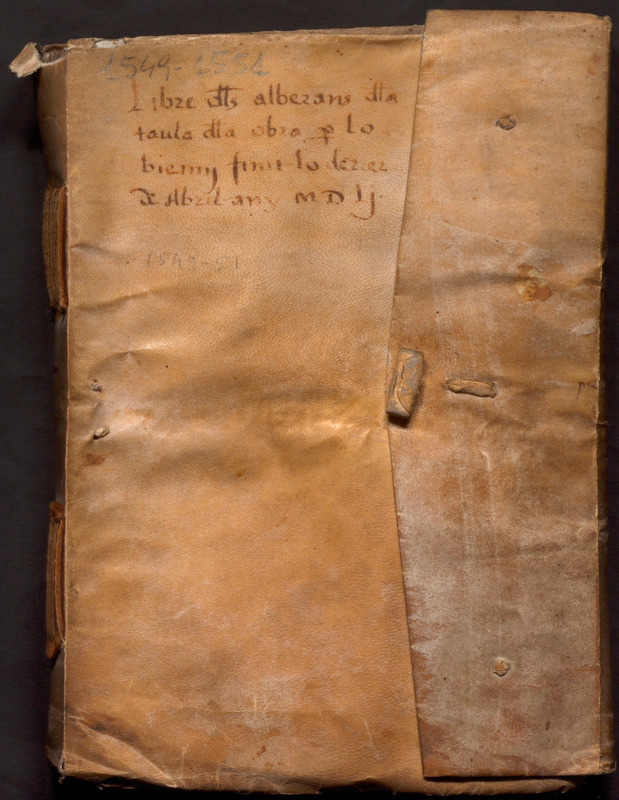 1549-1551
Libre dls alberans dla
taula dla obra p lo
bienny finit lo derer
de Abril any M D Lj.
1549-51